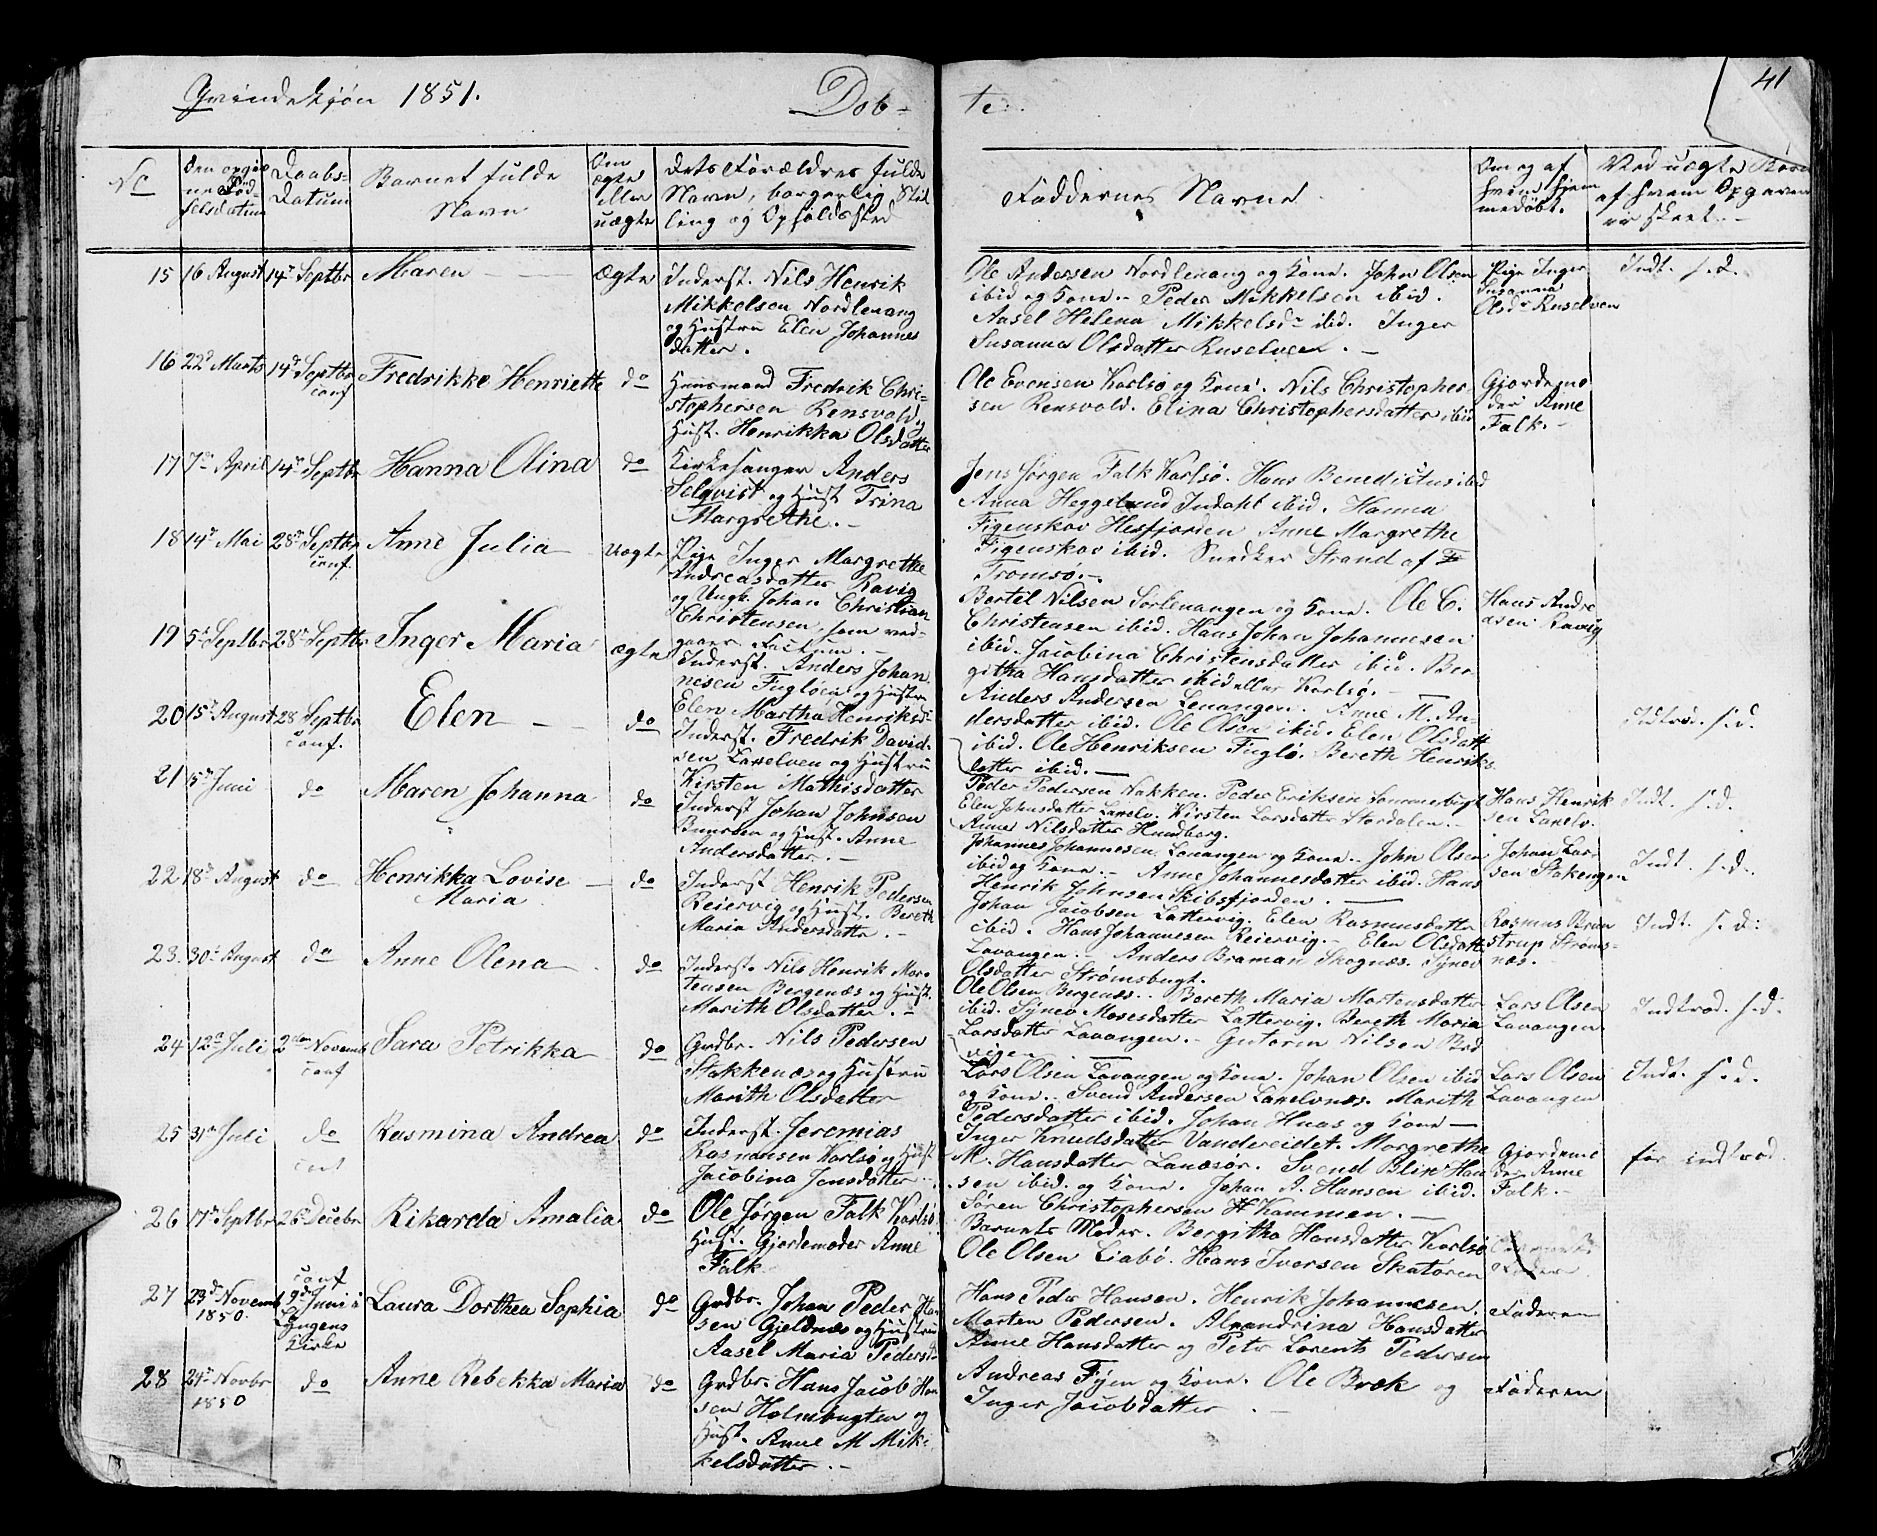 Qvindekjøn 1851.
Døb-
te.
41
No
Den opgiv
ne Fød-
selsdatum
Daabs-
Datum
Barnets fulde
Navn
Om
ægte
eller
uægte
Dets Forældres fulde
Navn, borgerlig Stil
ling og Opholdssted
Faddernes Navne
Om og af
hvem hjem
medøbt.
Ved uægte Børn
af hvem Opgaven
er skeet.
15 16 August 14de Septbr Maren Ægte
Inderst. Nils Henrik
Mikkelsen Nordlenang
og Hustru Elen Johannes
datter.
Ole Andersen Nordlenang og Kone. John Olsen
ibid og Kone. Peder Mikkelsen ibid.
Aasel Helena Mikkelsdr ibid. Inger
Susanna Olsdatter Russelven.
Pige Inger
Susanna
Olsdr Russelven
Indt. s.d.
16 22d Marts 14de Septbr Fredrikke Henriette do
conf
Huusmand Fredrik Chri-
stophersen Rensvold og
Hust. Henrikka Olsdatter
Ole Evensen Karlsø og Kone. Nils Christopher
sen Rensvold. Elina Christophersdatter ibid
Gjordemo
der Anne
Falk.
17 7de April 14de Septbr Hanna Olina do
Kirkesanger Anders
Selqvist og Hust Trina
Margrethe.
Jens Jørgen Falk Karlsø. Hans Benedictus ibid
Anna Heggelund Indahl ibid. Hanna
Figenskov Hesfjorden Anne Margrethe
Figenskov ibid. Snedker Strand af
Tromsø.
18 14de Mai 28de Septbr Anne Julia Uægte
conf.
Pige Inger Margrethe
Andreasdatter Ravig
og Ungk. Johan Christian
Christensen, som ved-
gaaer Factum.
Bertel Nilsen Sørlenangen og Kone. Ole C.
Christensen ibid. Hans Johan Johannesen
ibid. Jacobina Christensdatter ibid. Ber
githa Hansdatter ibid eller Karlsø.
Hans Andre
asen Ravig
19 5te Septbr 28de Septbr Inger Maria ægte
Inderst. Anders Johan
nesen Fugløen og Hustru
Elen Martha Henriksdr
Anders Andersen Lenangen. Anne M. An-
dersdatter ibid. Ole Olsen ibid. Elen Olsdatt
ibid. Ole Henriksen Fuglø. Bereth Henriks
datter ibid.
20 15de August 28 Septbr Elen do
conf.
Inderst. Fredrik David-
sen Lakselven og Hustru
Kirsten Mathisdatter
Peder Pedersen Nakken. Peder Eriksen Sommerbugt
Elen Johnsdatter Lakselv. Kirsten Larsdatter Stordalen.
Anne Nilsdatter Hundberg.
Hans Henrik
sen Lakselv.
Indtrod. s.d.
21 5te Juni do Maren Johanna do
Inderst Johan Johnsen
og Hust. Anne
Andersdatter.
Johannes Johannesen Lavangen og Kone. John Olsen
ibid og Kone. Anne Johannesdatter ibid. Hans
Henrik Johnsen Skibsfjorden.
Johan Lar
sen Stakengen
Indt. s.d.
22 18de August do Henrikka Lovise do
Maria
Inderst Henrik Pedersen
Reiervig og Hust. Bereth
Maria Andersdatter.
Johan Jacobsen Lattervig. Elen Rasmusdatter
ibid. Hans Johannesen Reiervig. Elen Olsdatt
Lavangen. Anders Braman Skognæs. Synev
Olsdatter Strømsbugt.
Rasmus Brun
strup Strøms-
næs.
Indt. s.d.
23. 30te August do Anne Olena do
Inderst. Nils Henrik Mor-
tensen Bergenæs og Hust.
Marith Olsdatter.
Ole Olsen Bergenæs. Bereth Maria Mortensdatter
ibid. Synev Mosesdatter Lattervig. Bereth Maria
Larsdatter Lavangen. Gutorm Nilsen Bred
vigen
Lars Olsen
Lavangen.
Indtrod. s.d.
24 12te Juli 2den Novemb Sara Petrikka do
conf
Grdbr. Nils Pedersen
Stakkenæs og Hustru
Marith Olsdatter
Lars Olsen Lavangen og Kone. Johan Olsen ibid
og Kone. Svend Andersen Lakselvnæs. Marith
Pedersdatter ibid. Johan Haas og Kone
Lars Olsen
Lavangen
Indt. s.d.
25 31te Juli do Rasmina Andrea do
conf
Inderst. Jeremias
Rasmussen Karlsø og Hust
Jacobina Jensdatter
Inger Knudsdatter Vandereidet. Margrethe
M. Hansdatter Lanesør. Svend Blix Han
sen ibid. og Kone. Johan A. Hansen ibid.
Gjordemo
der Anne
Falk.
før indtrod.
26 17de Septbr 26de Decebr Rikarda Amalia do
Ole Jørgen Falk Karlsø
Hust. Gjordemoder Anne
Falk
Søren Christophersen Kammen.
Barnets Moder. Bergitha Hansdatter Karlsø
Ole Olsen Liabø. Hans Iversen Skatøren
Barnets
Fader
27 23de Novemb conf
1850. 9de Juni i
Lyngens
Kirke
Laura Dorthea Sophia do
Grdbr. Johan Peder Han
sen Gjeldnæs og Hustru
Aasel Maria Pedersdr
Hans Peder Hansen. Henrik Johannesen.
Morten Pedersen. Alexandrina Hansdatter
Anne Hansdatter og Peter Lorents Pedersen
Faderen
28 24de Novbr do Anne Rebekka Maria do
1850
Grdbr. Hans Jacob Han
sen Holmbugten og
Hust. Anne M Mik-
kelsdatter.
Andreas Fyen og Kone. Ole Bræk og
Inger Jacobdatter.
Faderen